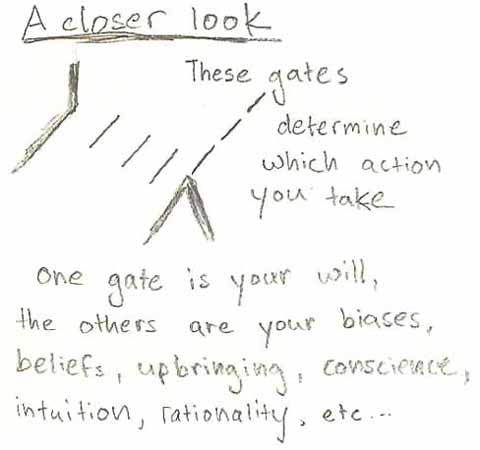 A closer look
These gates
determine
which action
you take
One gate is your will,
the others are your biases,
beliefs, upbringing, conscience,
intuition, rationality, etc...